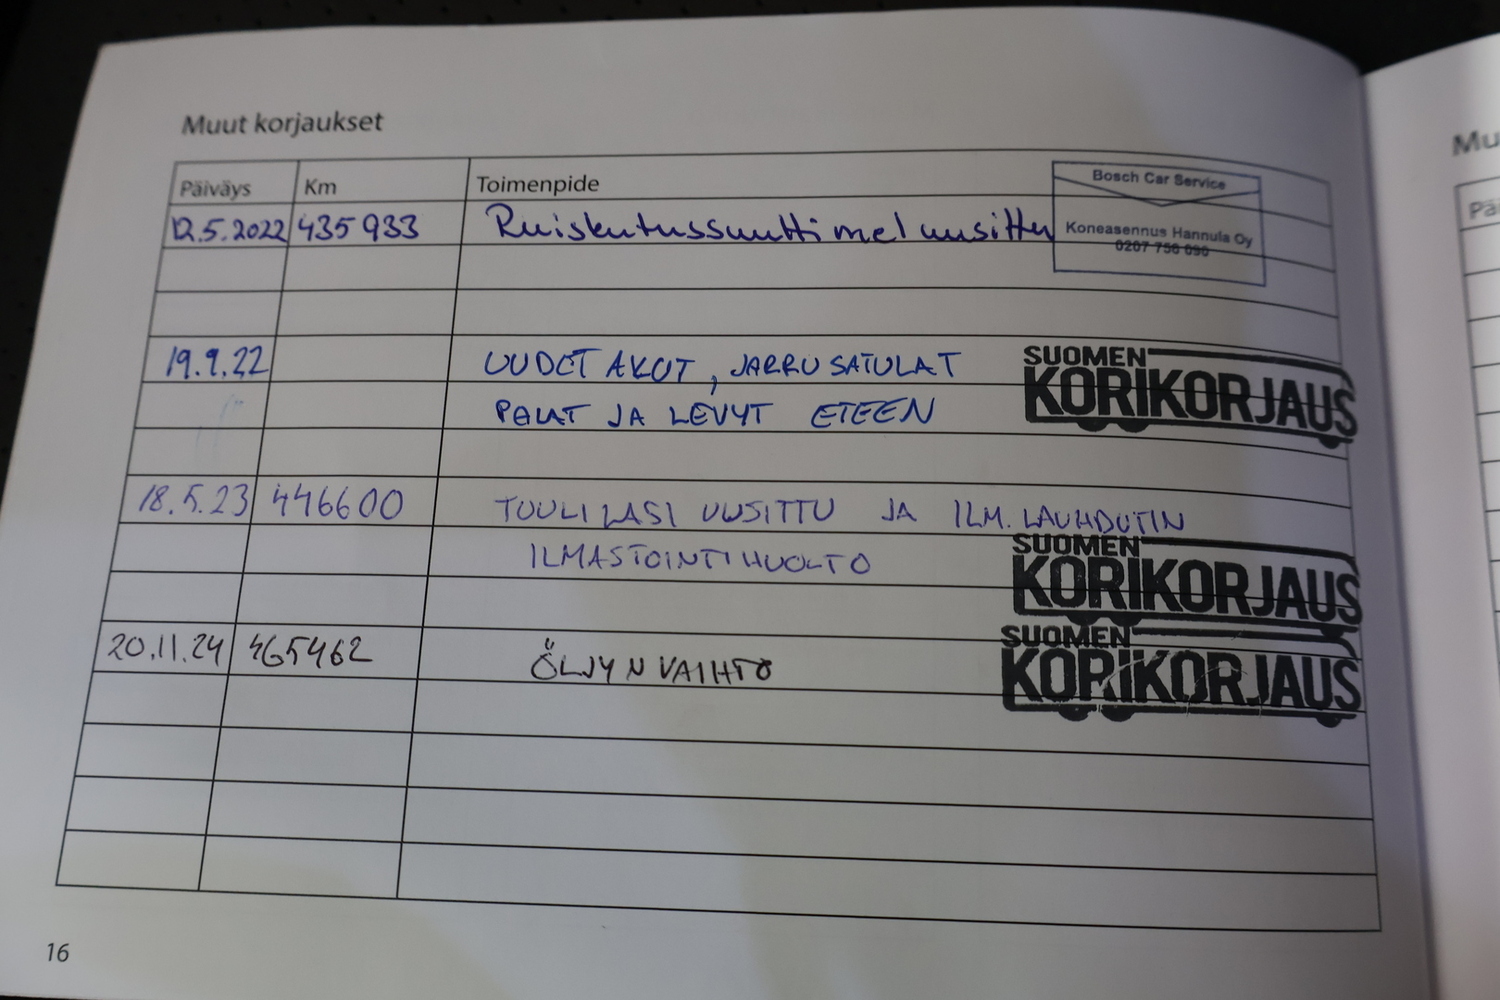 Muut korjaukset
Mu
Päiväys Km Toimenpide
Pä
Bosch Car Service
12.5.2022 435 933 Ruiskutussuuttimet uusittu
Koneasennus Hannula Oy
0207 756 090
19.9.22 UUDET AKUT, JARRUSATULAT
SUOMEN
KORIKORJAUS
PALAT JA LEVYT ETEEN
18.5.23 446600 TUULILASI UUSITTU JA ILM. LAUHDUTIN
SUOMEN
KORIKORJAUS
ILMASTOINTIHUOLTO
20.11.24 465462 ÖLJYNVAIHTO
SUOMEN
KORIKORJAUS
16